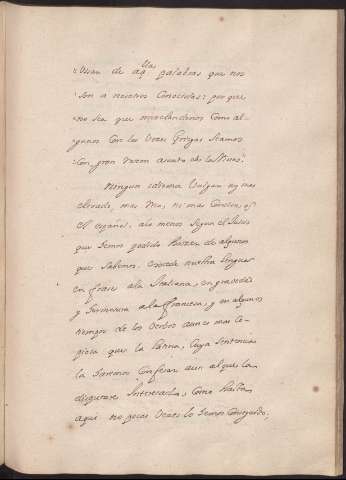 "usan de aq.llas palabras que no
son a nosotros conocidas: porque
"no sea que mezclandonos como al-
"gunos con las voces Griegas seamos
"con gran razon
Ningun idioma Vulgar ay mas
elevado, mas rico, ni mas conciso, q.e
el español, alo menos segun el Juicio
que hemos podido hacer de algunos
que sabemos. Excede nuestra lengua
en frases ala Italiana, en gravedad
y hermosura ala francesa, y en algunos
tiempos de los verbos aun es mas co-
piosa que la latina. Cuya sentencia
la haremos confesar aun al que la
disputare interesado, como hasta
aqui no pocas veces lo hemos conseguido.